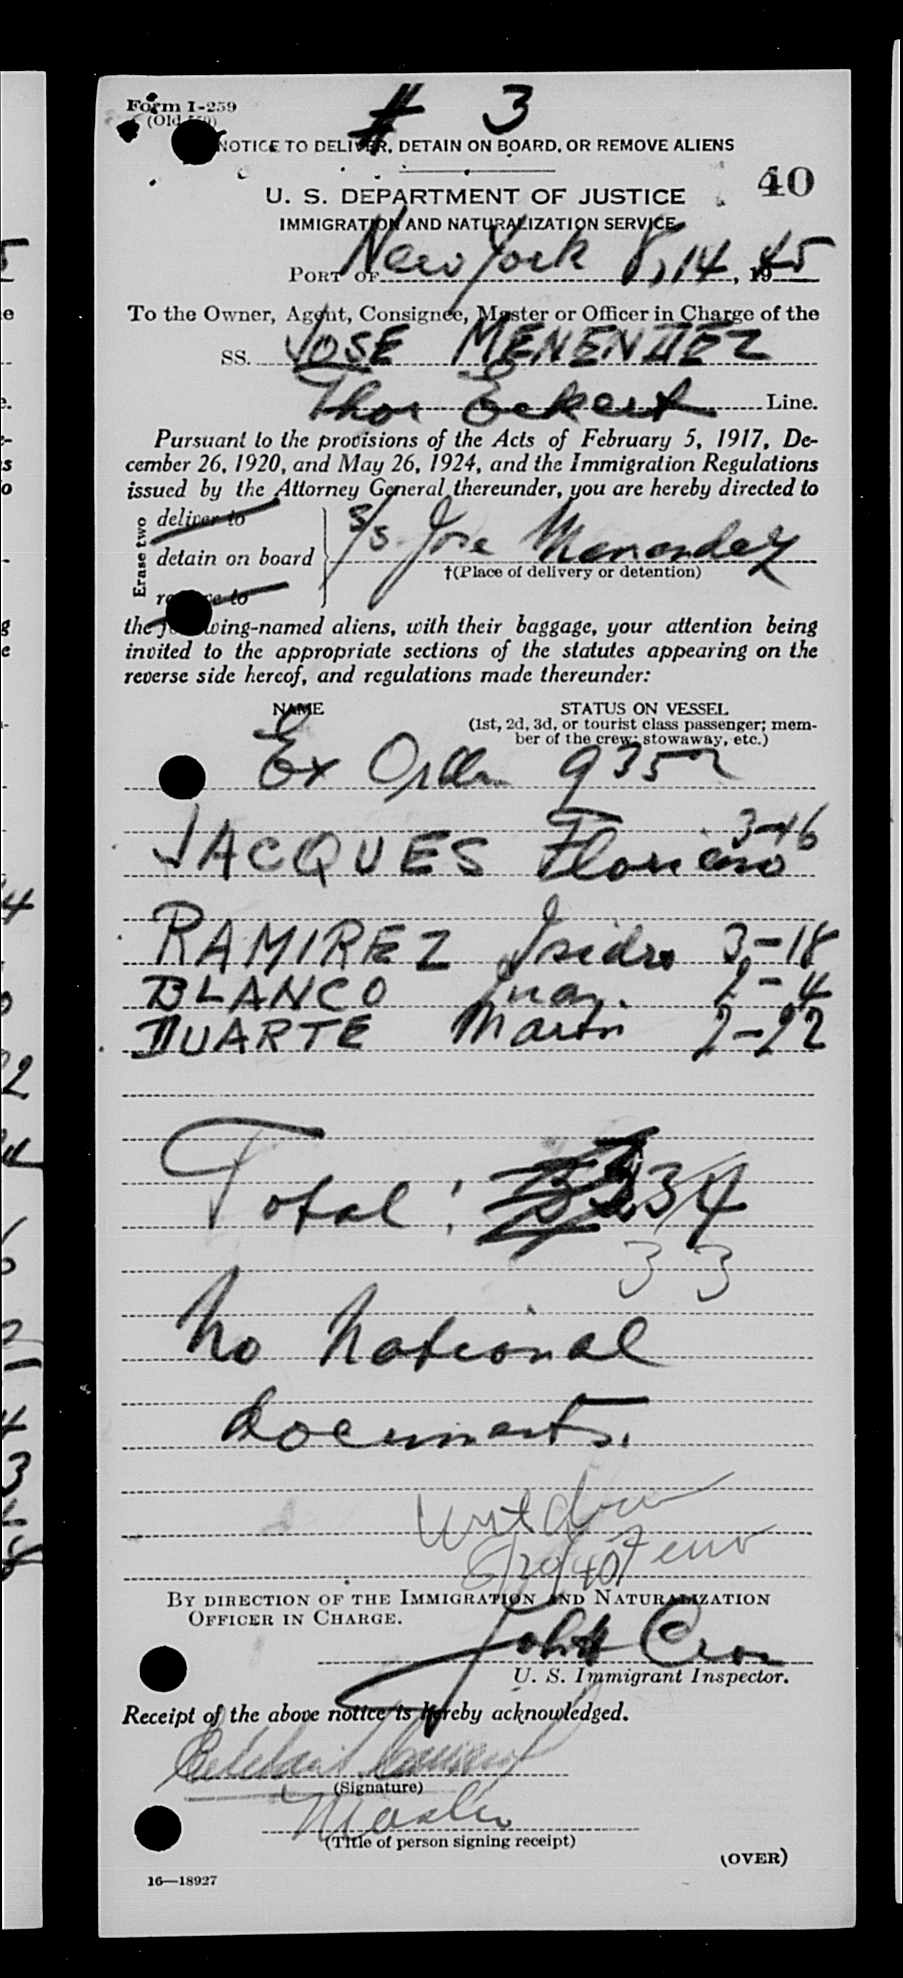 # 3
Form I-259
(Old
NOTICE TO DELIVER, DETAIN ON BOARD, OR REMOVE ALIENS
40
U. S. DEPARTMENT OF JUSTICE
IMMIGRATION AND NATURALIZATION SERVICE
PORT OF New York 8,14, 1945
To the Owner, Agent, Consignee, Master or Officer in Charge of the
SS. JOSE MENENDEZ
Thor Eckert Line.
Pursuant to the provisions of the Acts of February 5, 1917, De-
cember 26, 1920, and May 26, 1924, and the Immigration Regulations
issued by the Attorney General thereunder, you are hereby directed to
Erase two
deliver to
detain on board
S/S Jose Menendez
†(Place of delivery or detention)
remove to
the following-named aliens, with their baggage, your attention being
invited to the appropriate sections of the statutes appearing on the
reverse side hereof, and regulations made thereunder:
NAME STATUS ON VESSEL
(1st, 2d, 3d, or tourist class passenger; mem-
ber of the crew; stowaway, etc.)
Ex Order 9352
JACQUES Floriano 3-16
RAMIREZ Isidro 3-18
BLANCO Juan. 2-4
DUARTE Martin 2-22
Total: 34
33
No National
documents.
BY DIRECTION OF THE IMMIGRATION AND NATURALIZATION
OFFICER IN CHARGE.
John Cron
U. S. Immigrant Inspector.
Receipt of the above notice is hereby acknowledged.
(Signature)
Master
(Title of person signing receipt)
(OVER)
16—18927